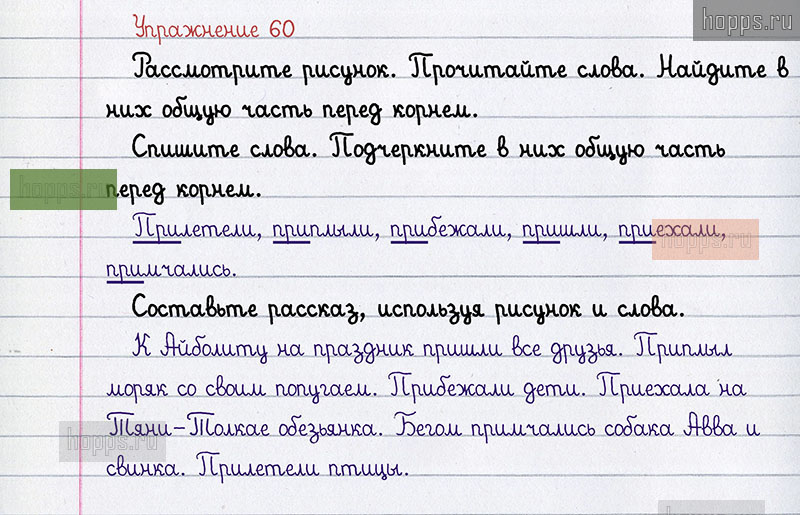 hopps.ru
Упражнение 60
Рассмотрите рисунок. Прочитайте слова. Найдите в
них общую часть перед корнем.
Спишите слова. Подчеркните в них общую часть
hopps.ru
перед корнем.
Прилетели, приплыли, прибежали, пришли, приехали,
hopps.ru
примчались.
Составьте рассказ, используя рисунок и слова.
К Айболиту на праздник пришли все друзья. Приплыл
моряк со своим попугаем. Прибежали дети. Приехала на
Тяни-Толкае обезьянка. Бегом примчались собака Авва и
hopps.ru
свинка. Прилетели птицы.